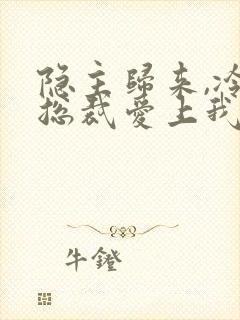 隐主歸来,冷
总裁爱上我
牛鐙